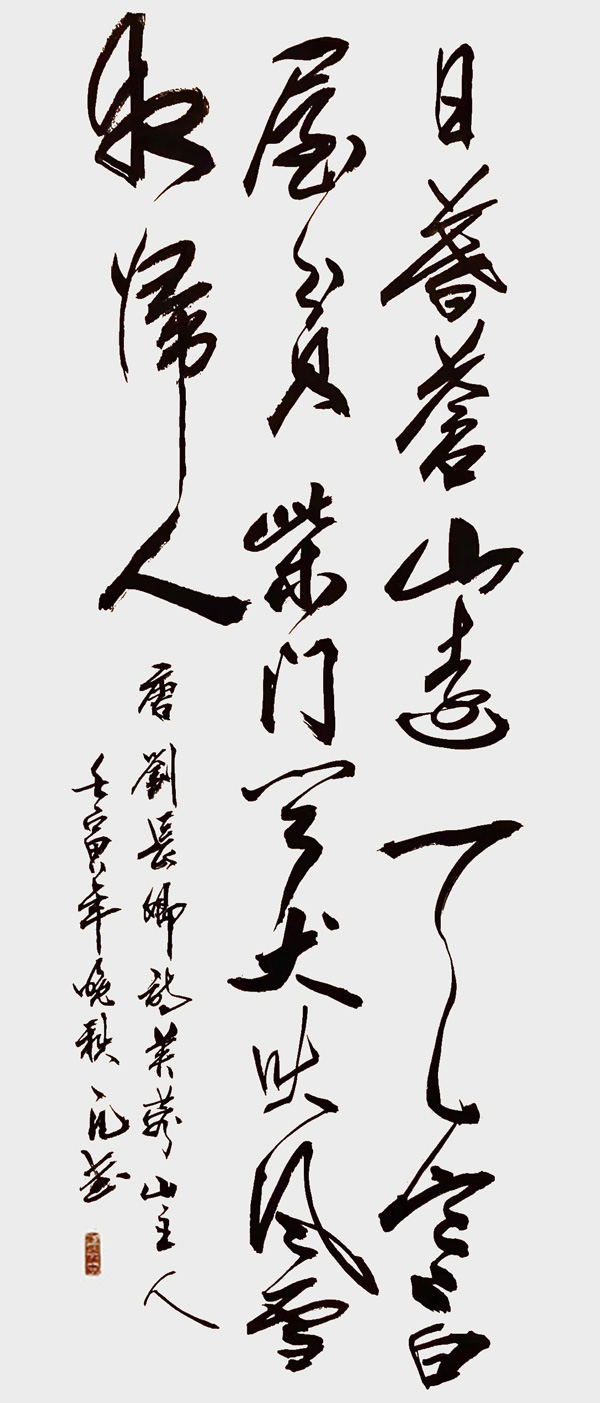 日暮蒼山遠天寒白
屋貧柴門聞犬吠風雪
夜歸人
唐劉長卿詩芙蓉山主人
壬寅年晚秋